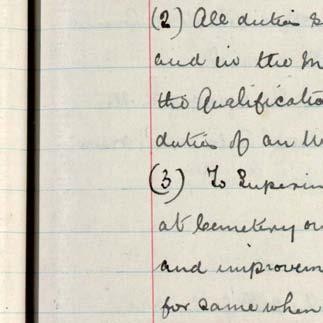 (2) All duties
and in the
the Qualificatio
duties of an
(3) To Superin
at Cemetery or
and improvem
for same when